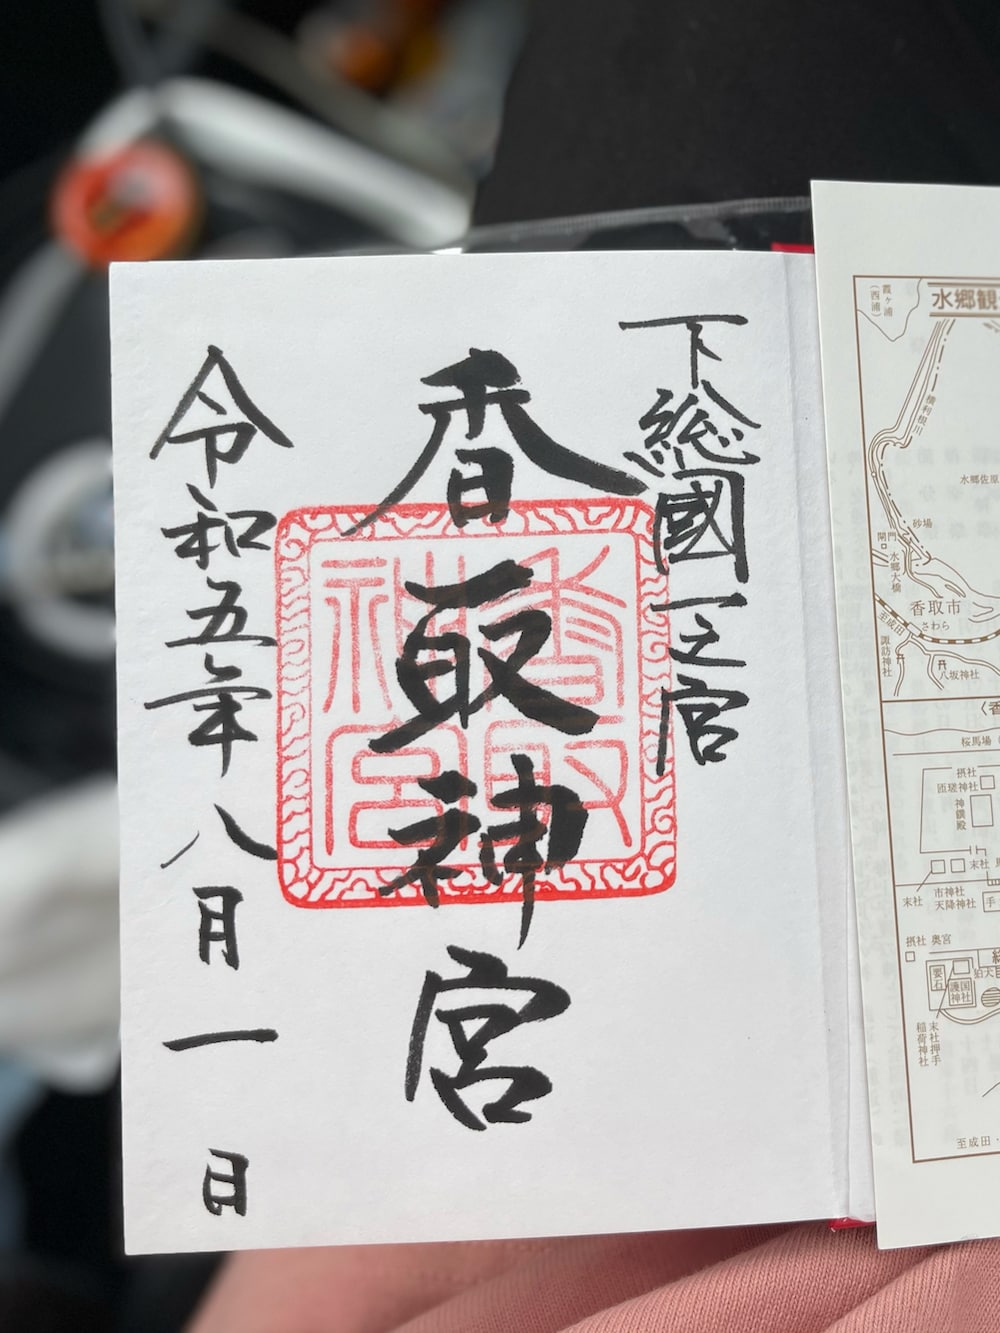 下総國一之宮
香取神宮
令和五年八月一日
香取
神宮
水郷観
霞ヶ浦
(西浦)
横利根川
水郷佐原
砂場
閘門
水郷大橋
香取市
さわら
至成田
諏訪神社
八坂神社
桜馬場
摂社
匝瑳神社
神饌殿
末社
末社
市神社
天降神社
手
摂社 奥宮
要石
護国神社
末社押手
稲荷神社
至成田・